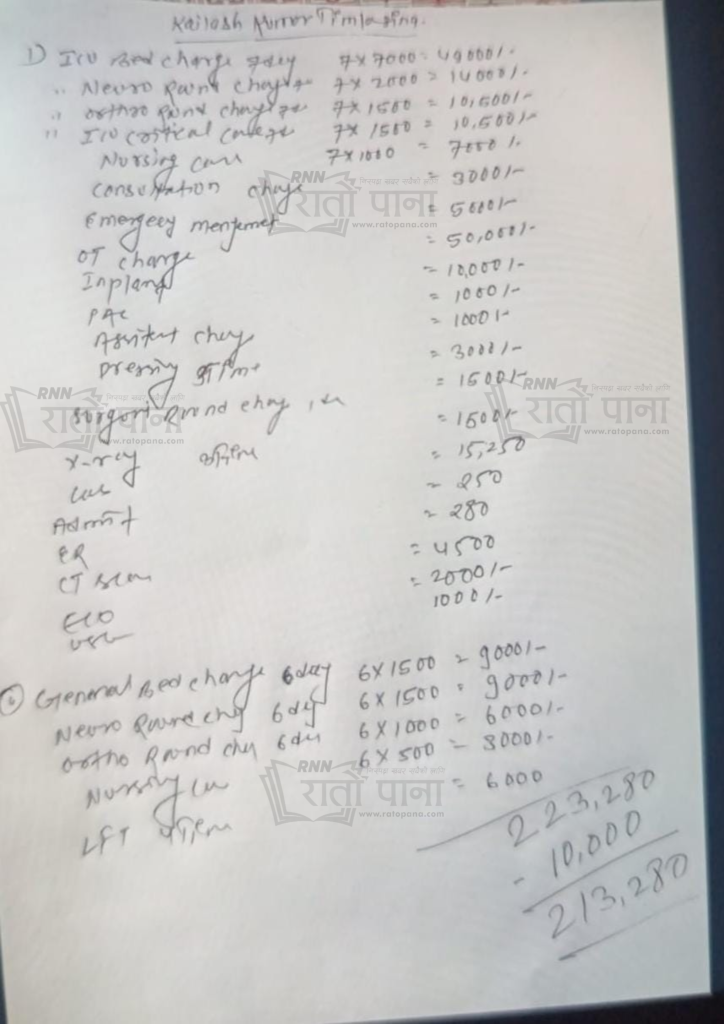 Kailash Kumar Timlasina.
1) ICU Bed charge 7day 7x7000 = 49000/-
" Neuro Round charge 7x2000 = 14000/-
" ortho Round charge 7x1500 = 10,500/-
" ICU critical care 7x1500 = 10,500/-
Nursing care 7x1000 = 7000/-
Consultation charge = 3000/-
Emergecy = 5000/-
OT charge = 50,000/-
Inplant = 10,000/-
PAC = 1000/-
Assistent charg = 1000/-
Dressing = 3000/-
Surgon Round charg = 1500/-
X-ray = 1500/-
Lab = 15,250
Admit = 250
ER = 280
CT scan = 4500
ECO = 2000/-
USG 1000/-
General Bed charge 6day 6x1500 = 9000/-
Neuro Round chg 6dy 6x1500 = 9000/-
ortho Round chg 6day 6x1000 = 6000/-
Nursing 6x500 = 3000/-
LFT = 6000
223,280
- 10,000
213,280
RNN निरन्तर खबर सधैंको लागि
रातो पाना
www.ratopana.com
RNN
रातो पाना
www.ratopana.com
RNN
रातो पाना
www.ratopana.com
RNN
रातो पाना
www.ratopana.com